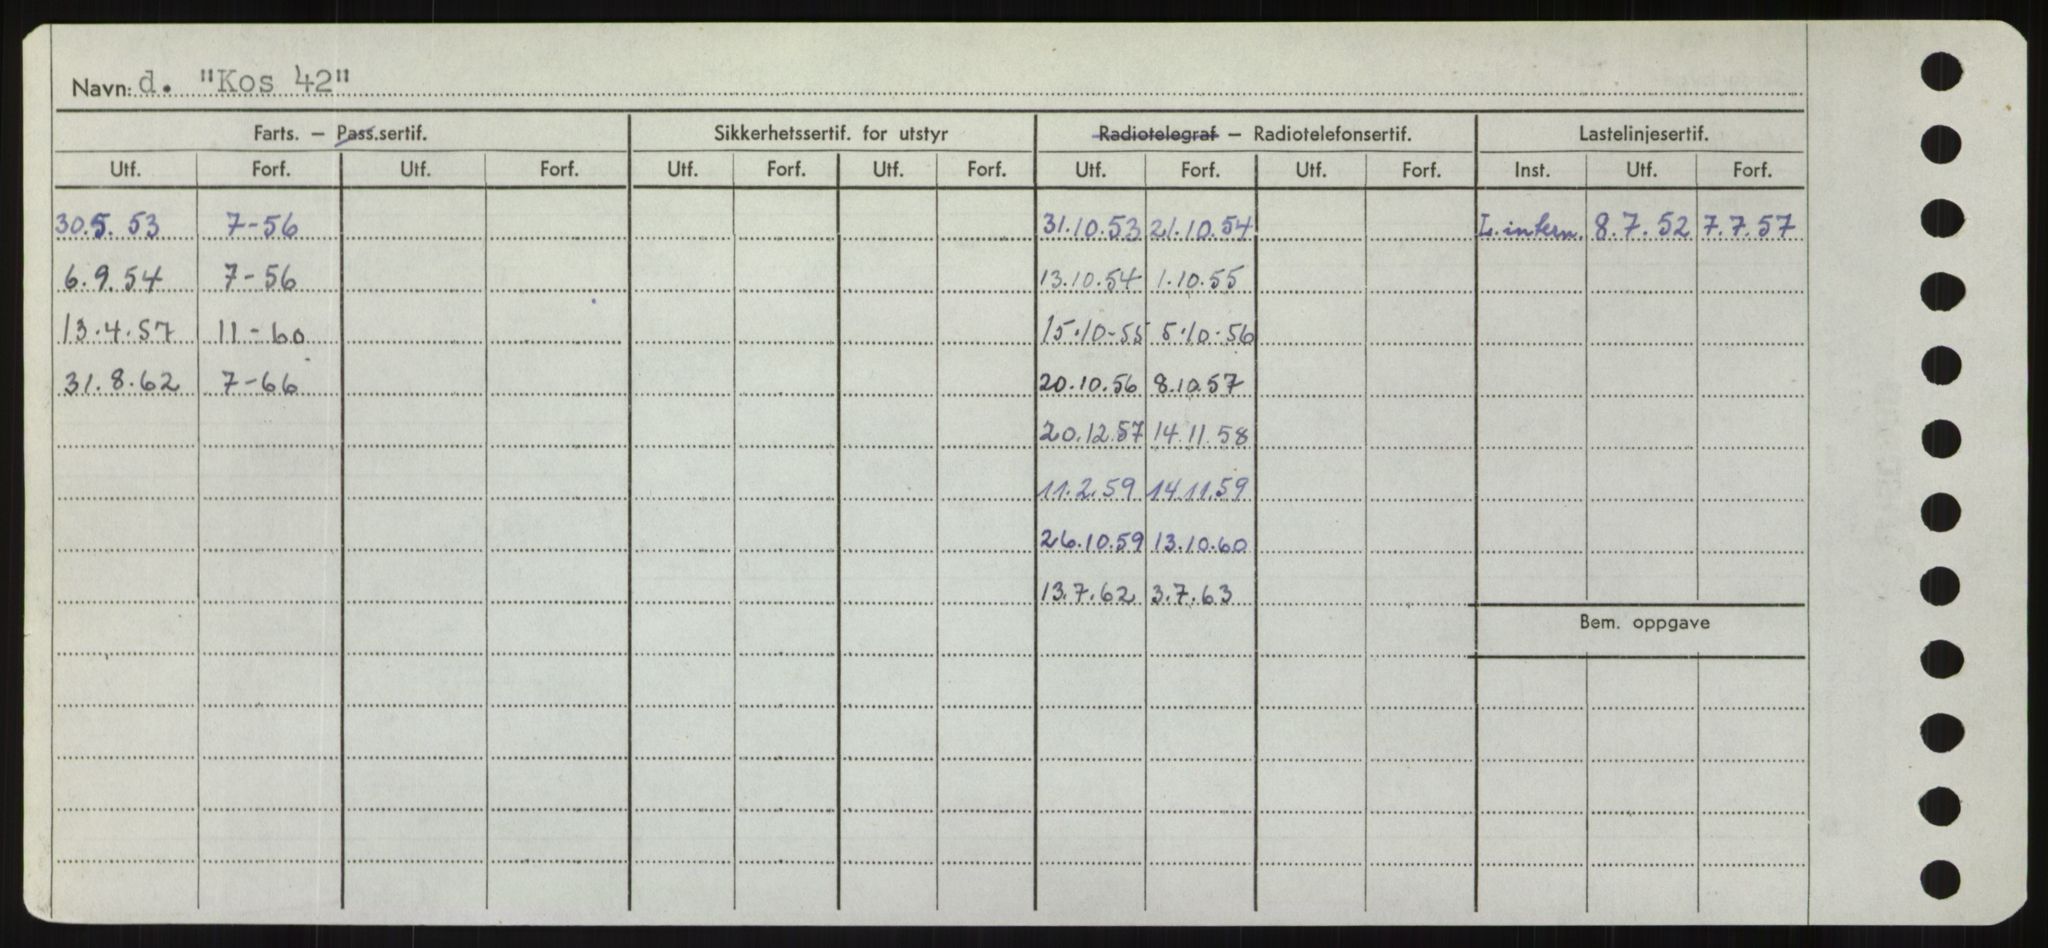 Navn: d. "Kos 42"
Farts. – Pass.sertif. Sikkerhetssertif. for utstyr Radiotelegraf – Radiotelefonsertif. Lastelinjesertif.
Utf. Forf. Utf. Forf. Utf. Forf. Utf. Forf. Utf. Forf. Utf. Forf. Inst. Utf. Forf.
30.5.53 7-56 31.10.53 21.10.54 L.intern. 8.7.52 7.7.57
6.9.54 7-56 13.10.54 1.10.55
13.4.57 11-60 15.10-55 5.10-56
31.8.62 7-66 20.10.56 8.10.57
20.12.57 14.11.58
11.2.59 14.11.59
26.10.59 13.10.60
13.7.62 3.7.63
Bem. oppgave